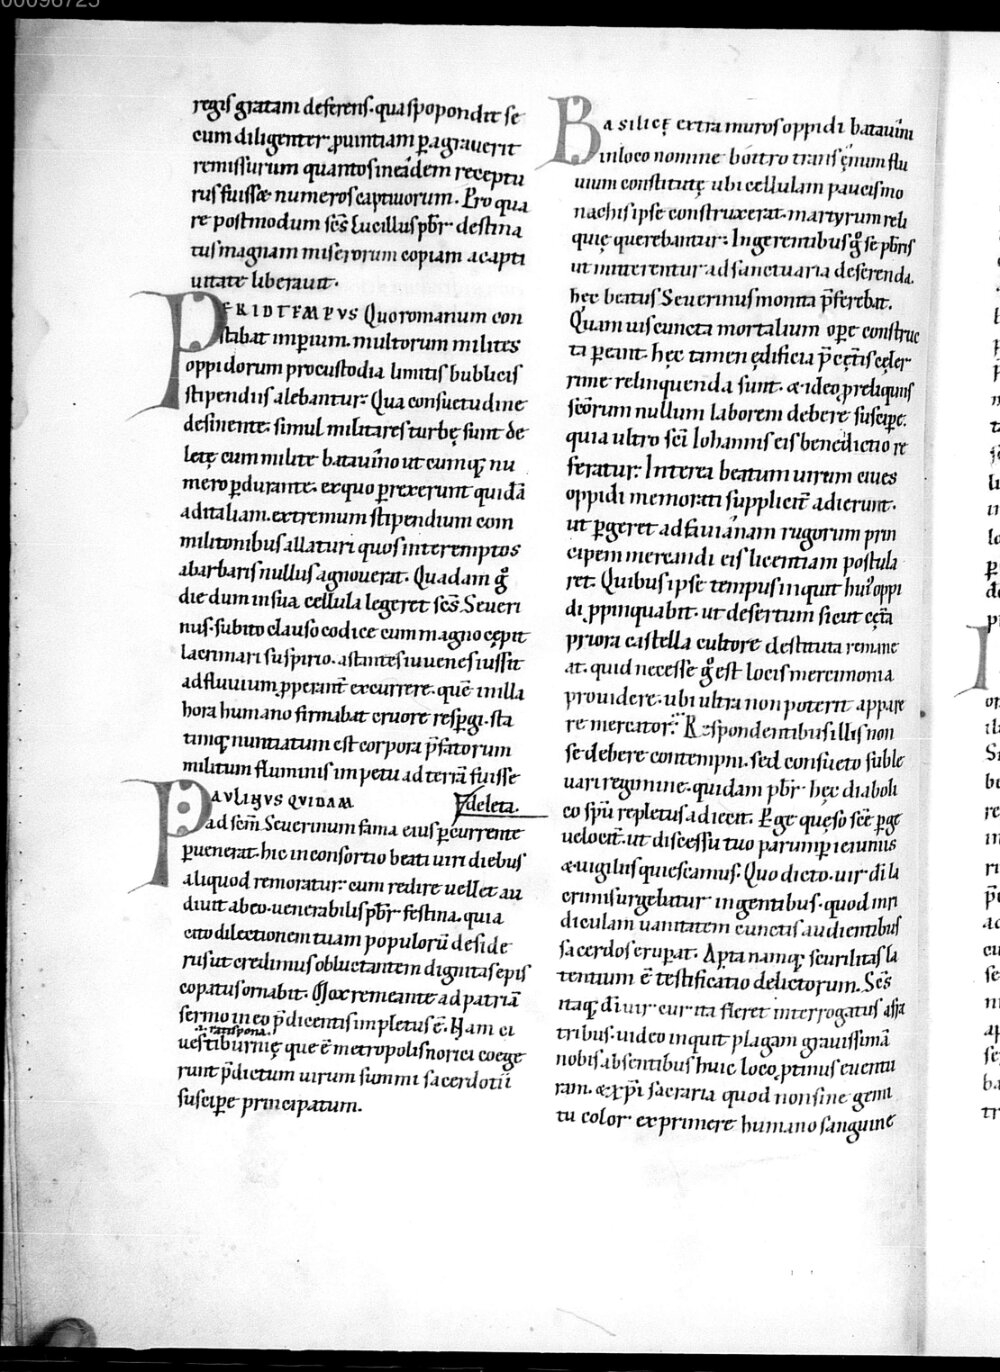 00096725
regis gratam deferens. qua spopondit se
cum diligenter ꝓuintiam ꝑagrauerit
remissurum quantos ineadem receptu
rus fuisset numeros captiuorum. Pro qua
re postmodum scs̄ Lucillus pbr̄ destina
tus magnam miserorum copiam acapti
uitate liberauit.
PER IDTEMPVS Quo romanum con
stabat imꝑium. multorum milites
oppidorum procustodia limitis bublicis
stipendiis alebantur. Qua consuetudine
desinente. simul militares turbę sunt de
letę cum milite batauino ut cumq; nu
mero ꝑdurante. ex quo ꝑrexerunt quidā
aditaliam. extremum stipendium com
militonibus allaturi quos interemptos
abarbaris nullus agnouerat. Quadam gͦ
die dum in sua cellula legeret scs̄ Seueri
nus. subito clauso codice cum magno cępit
lacrimari suspirio. astantes iuuenes iussit
ad fluuium ꝓperant̄ excurrere. quē in illa
hora humano firmabat cruore resꝑgi. sta
timq; nuntiatum est corpora p̄fatorum
militum fluminis impetu ad terrā fuisse
deleta.
PAVLINVS QVIDAM
ad scm̄ Seuerinum fama eius ꝑcurrente
ꝑuenerat. hic in consortio beati uiri diebus
aliquod remoratur. cum redire uellet au
diuit abeo. uenerabilis pbr̄ festina. quia
cito dilectionem tuam populorū deside
rus ut credimus obluctantem dignitas epis
copatus ornabit. Mox remeante ad patriā
sermo in eo p̄dicentis impletus ē. Nam ci
ues tiburnię que ē metropolis norici coege
runt p̄dictum uirum summi sacerdotii
susciꝑe principatum.
BASILICĘ extra muros oppidi batauini
in loco nomine boitro trans ęnum flu
uium constitutę ubi cellulam paucis mo
nachis ipse construxerat. martyrum reli
quię querebantur. Ingerentibus gͦ se pbris
ut mitterentur ad sanctuaria deferenda.
hęc beatus Seuerinus monita p̄ferebat.
Quam uis cuncta mortalium oꝑe construc
ta ꝑeant. hęc tamen ędificia p̄ cęt̄is cęler
rime relinquenda sunt. & ideo ꝓ reliquiis
scōrum nullum laborem debere susciꝑe.
quia ultro scī Iohannis eis benedictio re
feratur. Interea beatum uirum ciues
oppidi memorati supplicit̄ adierunt.
ut ꝑgeret ad fauianam rugorum prin
cipem mercandi eis licentiam postula
ret. Quibus ipse tempus inquit huiͦ oppi
di ꝓpinquabit. ut desertum sicut cęt̄a
priora castella cultore destituta remane
at. quid necesse gͦ est locis mercimonia
prouidere. ubi ultra non poterit appare
re mercator. Respondentibus illis non
se debere contempni. sed consueto suble
uari regimine. quidam pbr̄ hęc diaboli
co spū repletus adiecit. Perge quęso scē ꝑge
uelocit̄. ut discessu tuo parumꝑ ieiuniis
& uigiliis quiescamus. Quo dicto. uir dī la
crimis urgebatur ingentibus. quod inri
diculam uanitatem cunctis audientibus
sacerdos eruꝑat. Aꝑta namq; scurilitas la
tentium ē testificatio delictorum. Scs̄
itaq; dī uir cur ita fleret interrogatus assa
tribus. uideo inquit plagam grauissimā
nobis absentibus huic loco ꝓtinus euentu
ram. & xp̄i sacraria quod non sine gemi
tu color exprimere humano sanguine